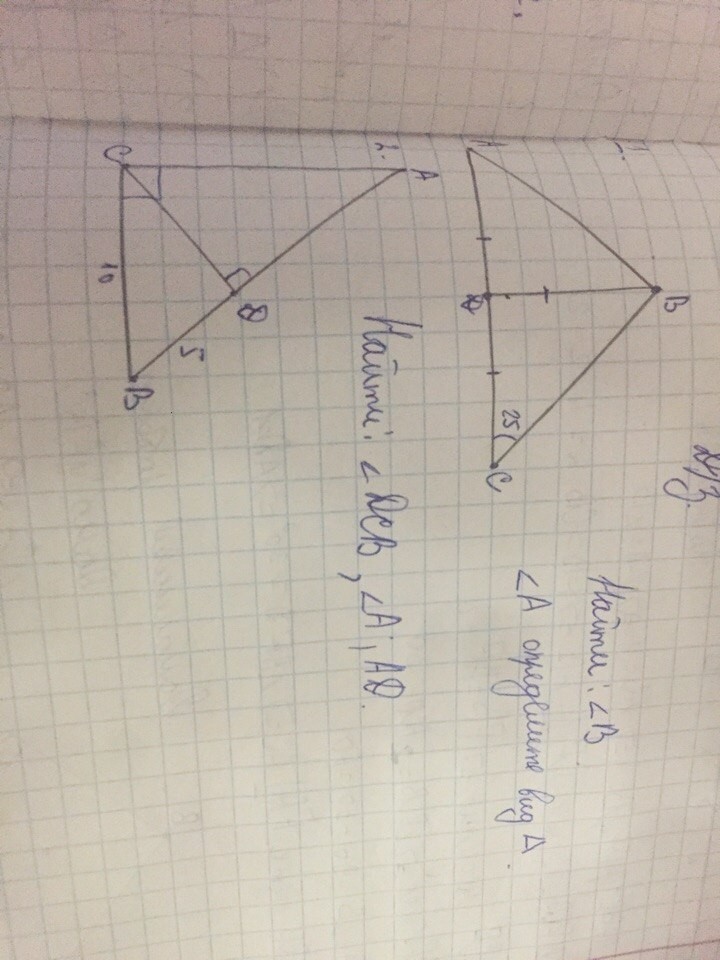 Д/З.
1.
B
A
D
C
25
Найти: ∠B
∠A определите вид Δ
2.
A
C
D
B
10
5
Найти: ∠DCB, ∠A, AD.